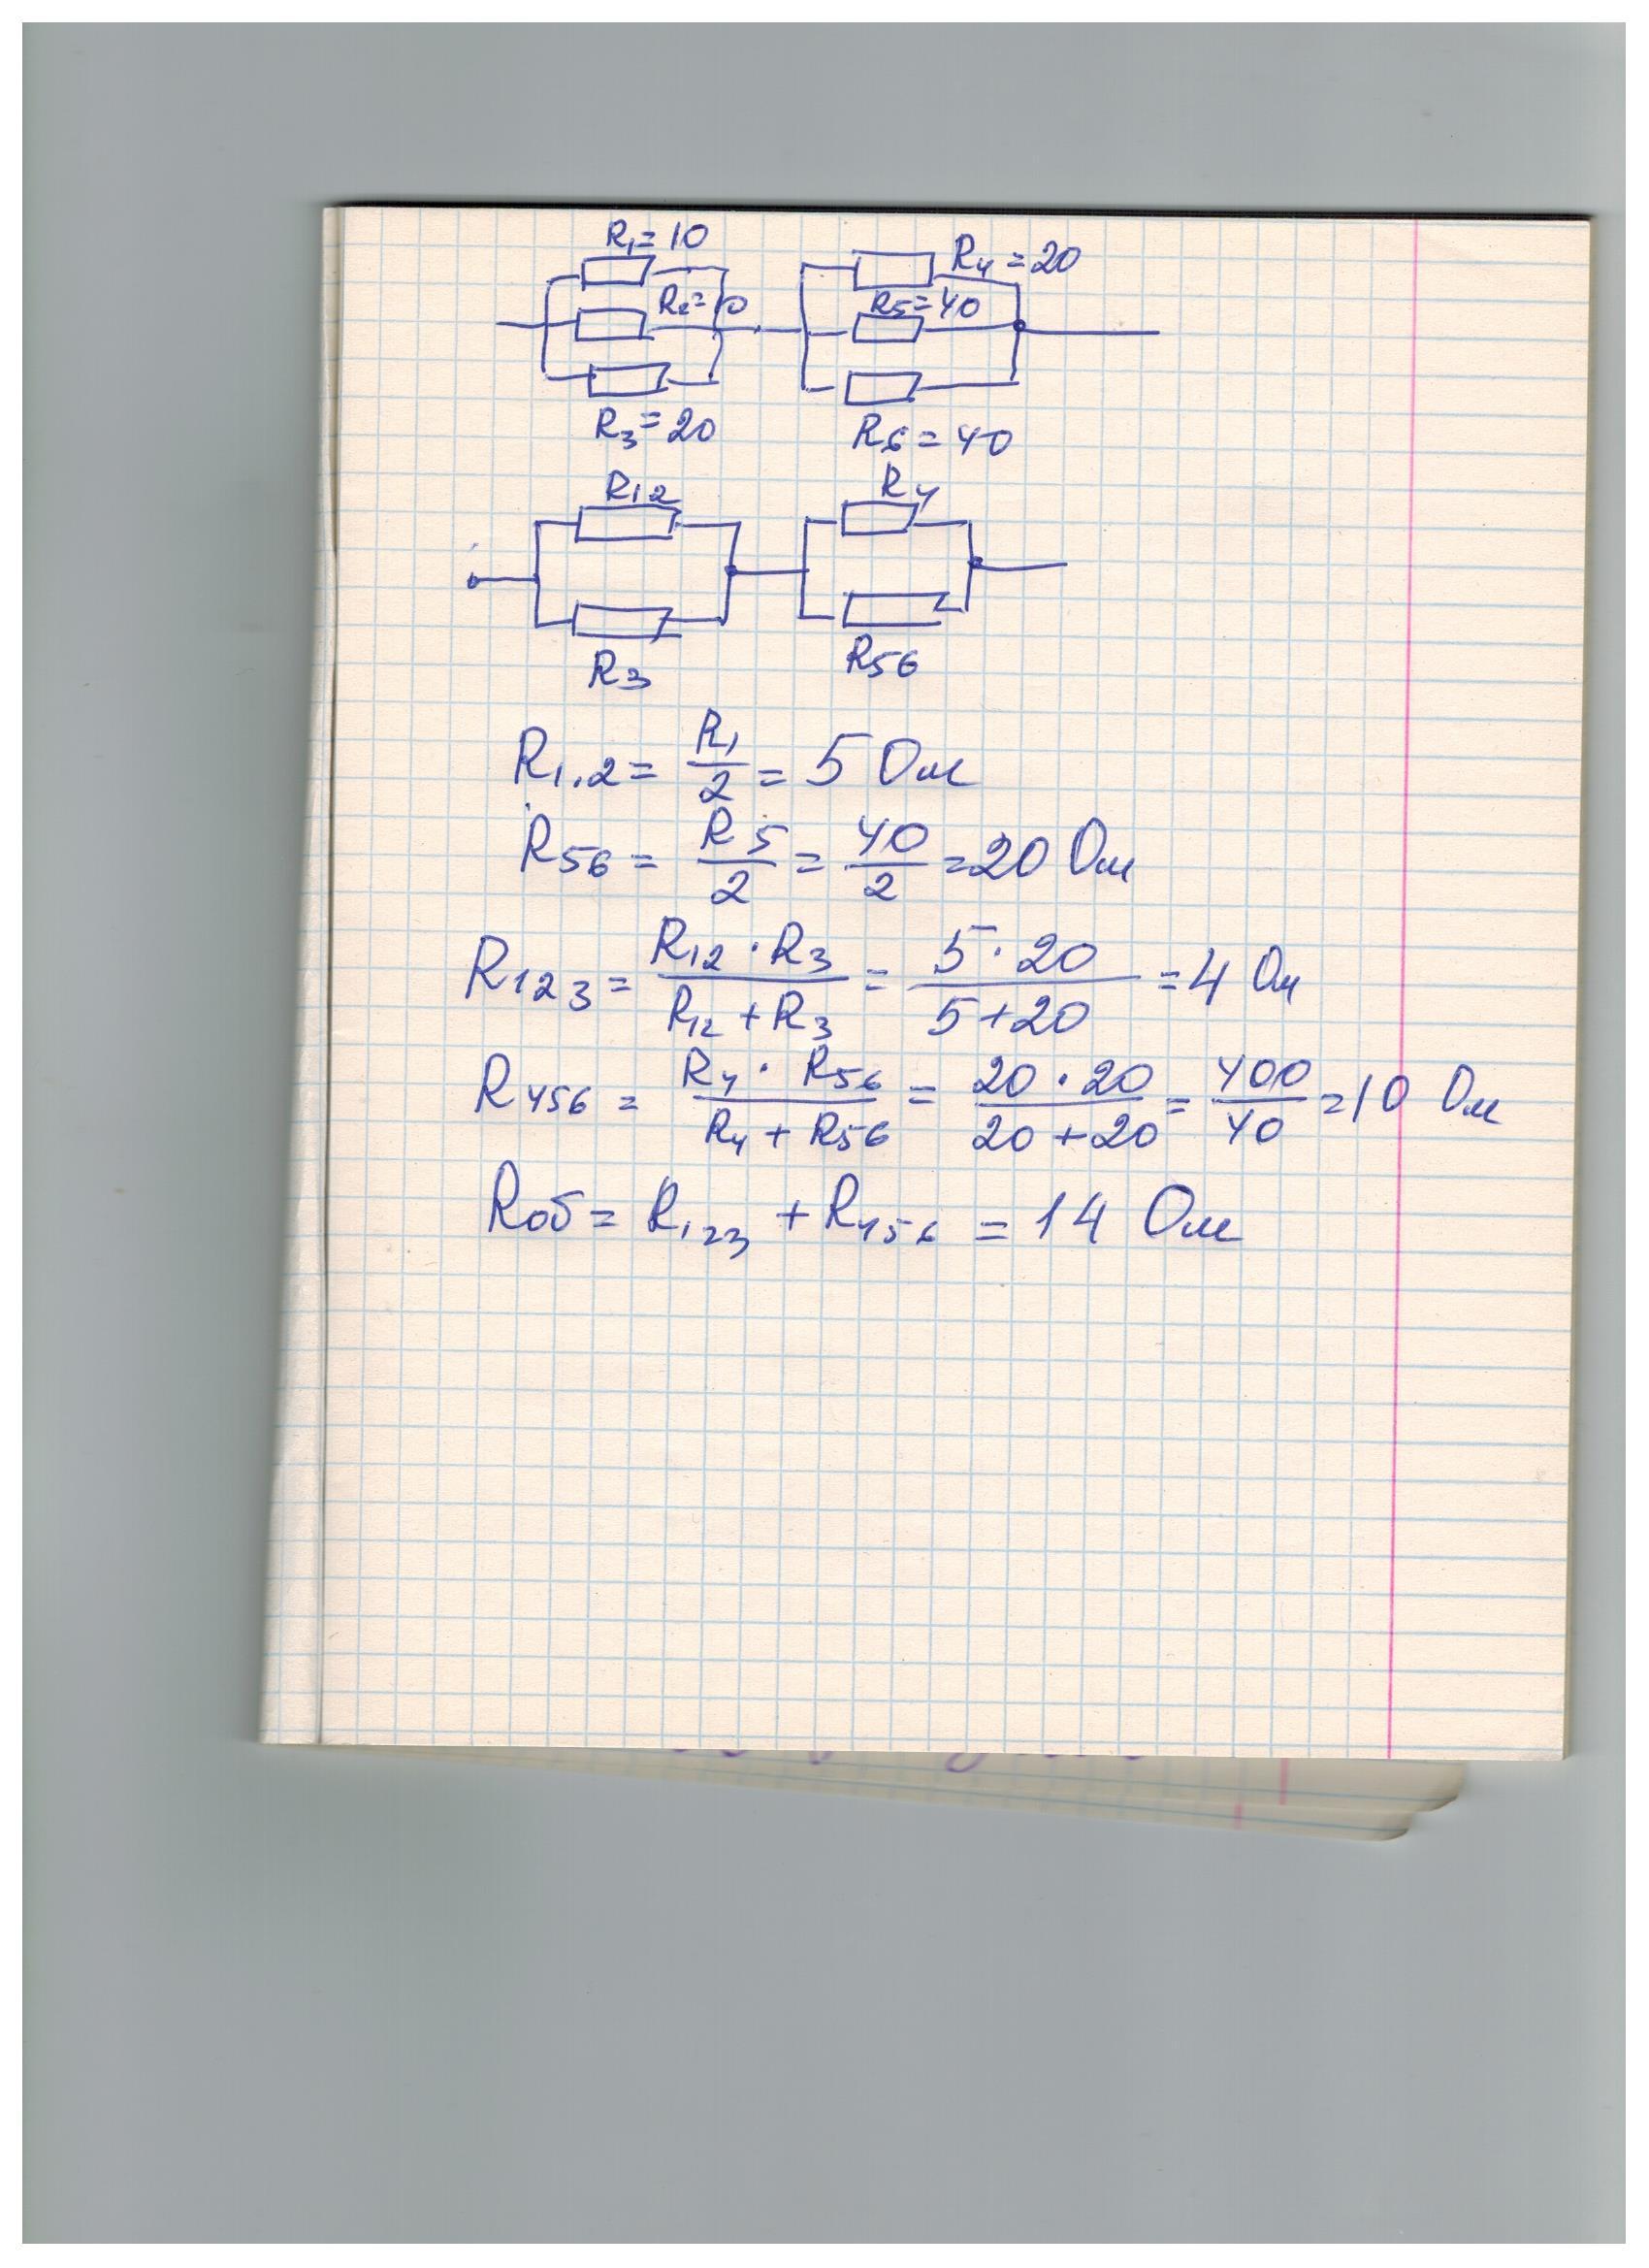 R₁=10
R₂=10
R₃=20
R₄=20
R₅=40
R₆=40
R₁₂
R₃
R₄
R₅₆
R₁.₂ = R₁/2 = 5 Ом
R₅₆ = R₅/2 = 40/2 = 20 Ом
R₁₂₃ = R₁₂ · R₃ / R₁₂ + R₃ = 5 · 20 / 5+20 = 4 Ом
R₄₅₆ = R₄ · R₅₆ / R₄ + R₅₆ = 20 · 20 / 20+20 = 400/40 = 10 Ом
Rоб = R₁₂₃ + R₄₅₆ = 14 Ом